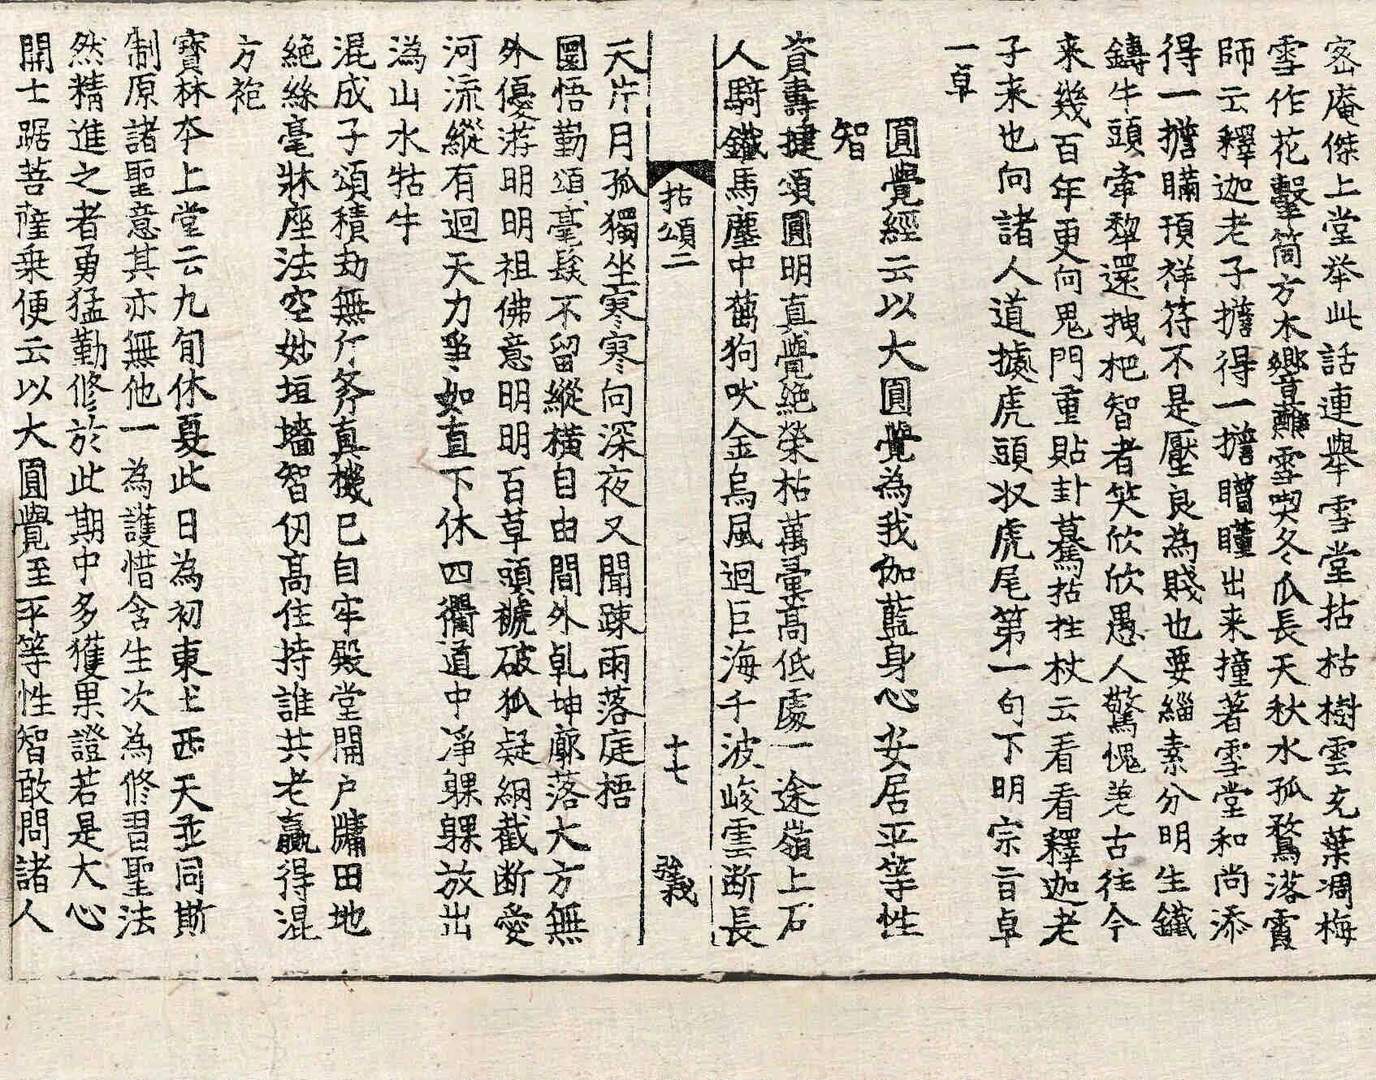 密庵傑上堂举此話連舉雪堂拈枯樹雲充葉凋梅
雪作花擊筒方木響蘸雪喫冬瓜長天秋水孤鶩落霞
師云釋迦老子擔得一擔瞢瞳出来撞著雪堂和尚添
得一擔瞞頇祥符不是壓良為賤也要緇素分明生鐵
鑄牛頭牽犂還拽杷智者笑欣欣愚人驚愧差古往今
来幾百年更向鬼門重貼卦驀拈拄杖云看看釋迦老
子来也向諸人道據虎頭収虎尾第一句下明宗旨卓
一卓
圓覺經云以大圓覺為我伽藍身心安居平等性
智
資壽捷頌圓明直覺絶榮枯萬彚高低處一途嶺上石
人騎鐵馬塵中舊狗吠金烏風迴巨海千波峻雲断長
拈頌二
十七
天片月孤獨坐寒寒向深夜又聞踈雨落庭梧
圜悟勤頌毫髮不留縱横自由間外乹坤廓落大方無
外優游明明祖佛意明明百草頭虩破狐疑網截断愛
河流縱有迴天力爭如直下休四衢道中淨躶躶放出
溈山水牯牛
混成子頌積劫無行务真機已自牢殿堂開户牗田地
絶絲毫牀座法空妙垣墻智仞高住持誰共老贏得混
方袍
寶林夲上堂云九旬休夏此日為初東土西天並同斯
制原諸聖意其亦無他一為護惜含生次為修習聖法
然精進之者勇猛勤修於此期中多獲果證若是大心
開士踞菩薩乗便云以大圓覺至平等性智敢問諸人